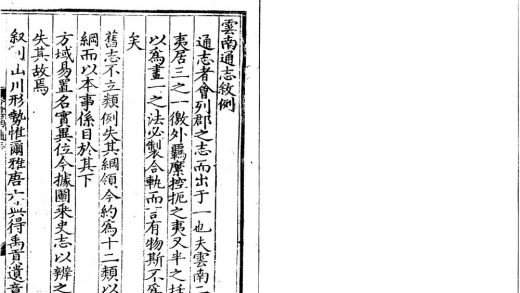 雲南通志敘例
通志者會列郡之志而出于一也夫雲南
夷居三之一徼外羈縻控扼之夷又半之
以為畫一之法必製合軌而言有物斯不
矣
舊志不立類例失其綱領今約為十二類以
綱而以本事係目於其下
方域易置名實異位今據圖乘史志以辨之
失其故焉
叙山川形勢惟爾雅唐六典得禹貢遺意